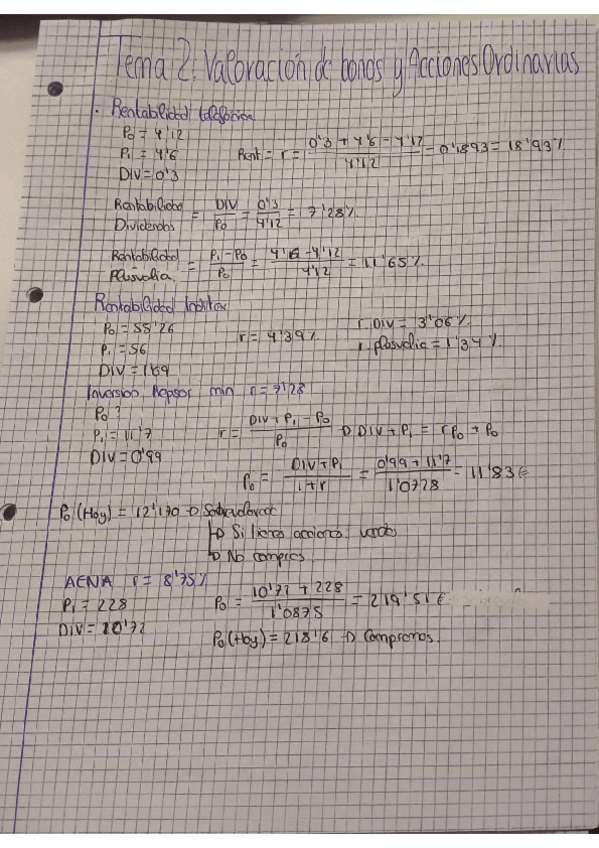 Tema 2: Valoración de bonos y Acciones Ordinarias
· Rentabilidad telefónica
P₀ = 4'12
P₁ = 4'6
DIV = 0'3
Rent = r = (0'3 + 4'6 - 4'12) / 4'12 = 0'1893 = 18'93%
Rentabilidad Dividendos = DIV / P₀ = 0'3 / 4'12 = 7'28%
Rentabilidad Plusvalia = (P₁ - P₀) / P₀ = (4'6 - 4'12) / 4'12 = 11'65%
Rentabilidad Inditex
P₀ = 55'26
P₁ = 56
DIV = 1'69
r = 4'39%
r. DIV = 3'06%
r. plusvalia = 1'34%
Inversion Repsol min r = 7'28
P₀ ?
P₁ = 11'7
DIV = 0'99
r = (DIV + P₁ - P₀) / P₀ → DIV + P₁ = rP₀ + P₀
P₀ = (DIV + P₁) / (1 + r) = (0'99 + 11'7) / 1'0728 = 11'83€
P₀ (Hoy) = 12'170 → Sobrevalorado
↳ Si tienes acciones, vendes
↳ No compres
AENA r = 8'75%
P₁ = 228
DIV = 10'72
P₀ = (10'72 + 228) / 1'0875 = 219'51€
P₀ (Hoy) = 218'6 → Compramos.